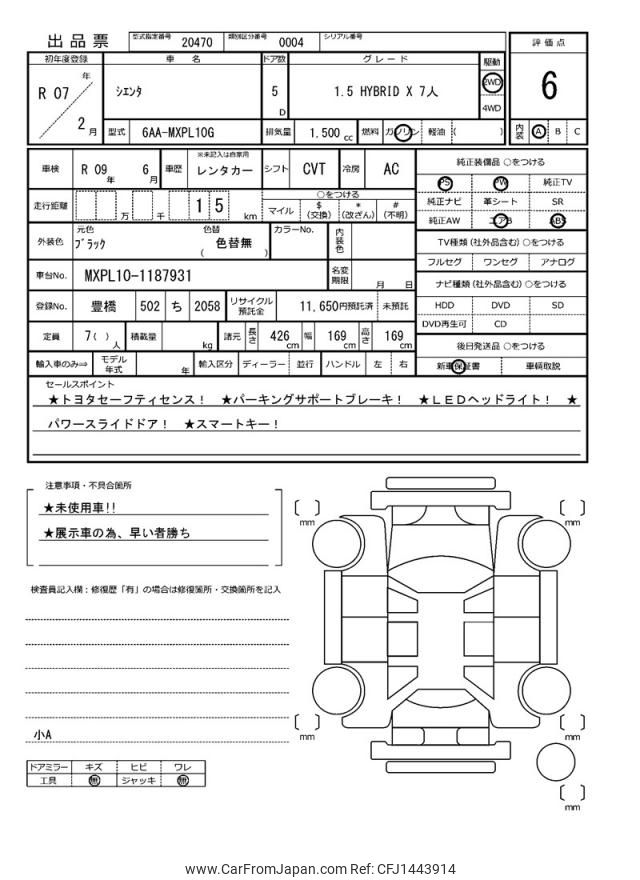 出品票
型式指定番号 20470 類別区分番号 0004 シリアル番号
初年度登録 車名 ドア数 グレード 駆動 評価点
R 07 年 2 月
シエンタ 5 D 1.5 HYBRID X 7人 2WD 4WD 6
型式 6AA-MXPL10G 排気量 1,500 cc 燃料 ガソリン 軽油 ( ) 内装 A B C
車検 R 09 年 6 月 車歴 ※未記入は自家用 レンタカー シフト CVT 冷房 AC
走行距離 万 千 1 5 km
○をつける
マイル $(交換) *(改ざん) #(不明)
外装色 元色 ブラック 色替 色替無 ( ) カラーNo. 内装色
車台No. MXPL10-1187931 名変期限 月 日
登録No. 豊橋 502 ち 2058 リサイクル預託金 11,650円預託済 未預託
定員 7( ) 人 積載量 kg 諸元 長さ 426 cm 幅 169 cm 高さ 169 cm
輸入車のみ⇒ モデル年式 年 輸入区分 ディーラー 並行 ハンドル 左 右
純正装備品 ○をつける
PS PW 純正TV
純正ナビ 革シート SR
純正AW エアB ABS
TV種類(社外品含む)○をつける
フルセグ ワンセグ アナログ
ナビ種類(社外品含む)○をつける
HDD DVD SD
DVD再生可 CD
後日発送品 ○をつける
新車保証書 車輌取説
セールスポイント
★トヨタセーフティセンス！ ★パーキングサポートブレーキ！ ★ＬＥＤヘッドライト！ ★
パワースライドドア！ ★スマートキー！
注意事項・不具合箇所
★未使用車!!
★展示車の為、早い者勝ち
検査員記入欄：修復歴「有」の場合は修復箇所・交換箇所を記入
小A
ドアミラー キズ ヒビ ワレ
工具 無 ジャッキ 無
mm
mm
mm
mm
mm
www.CarFromJapan.com Ref: CFJ1443914